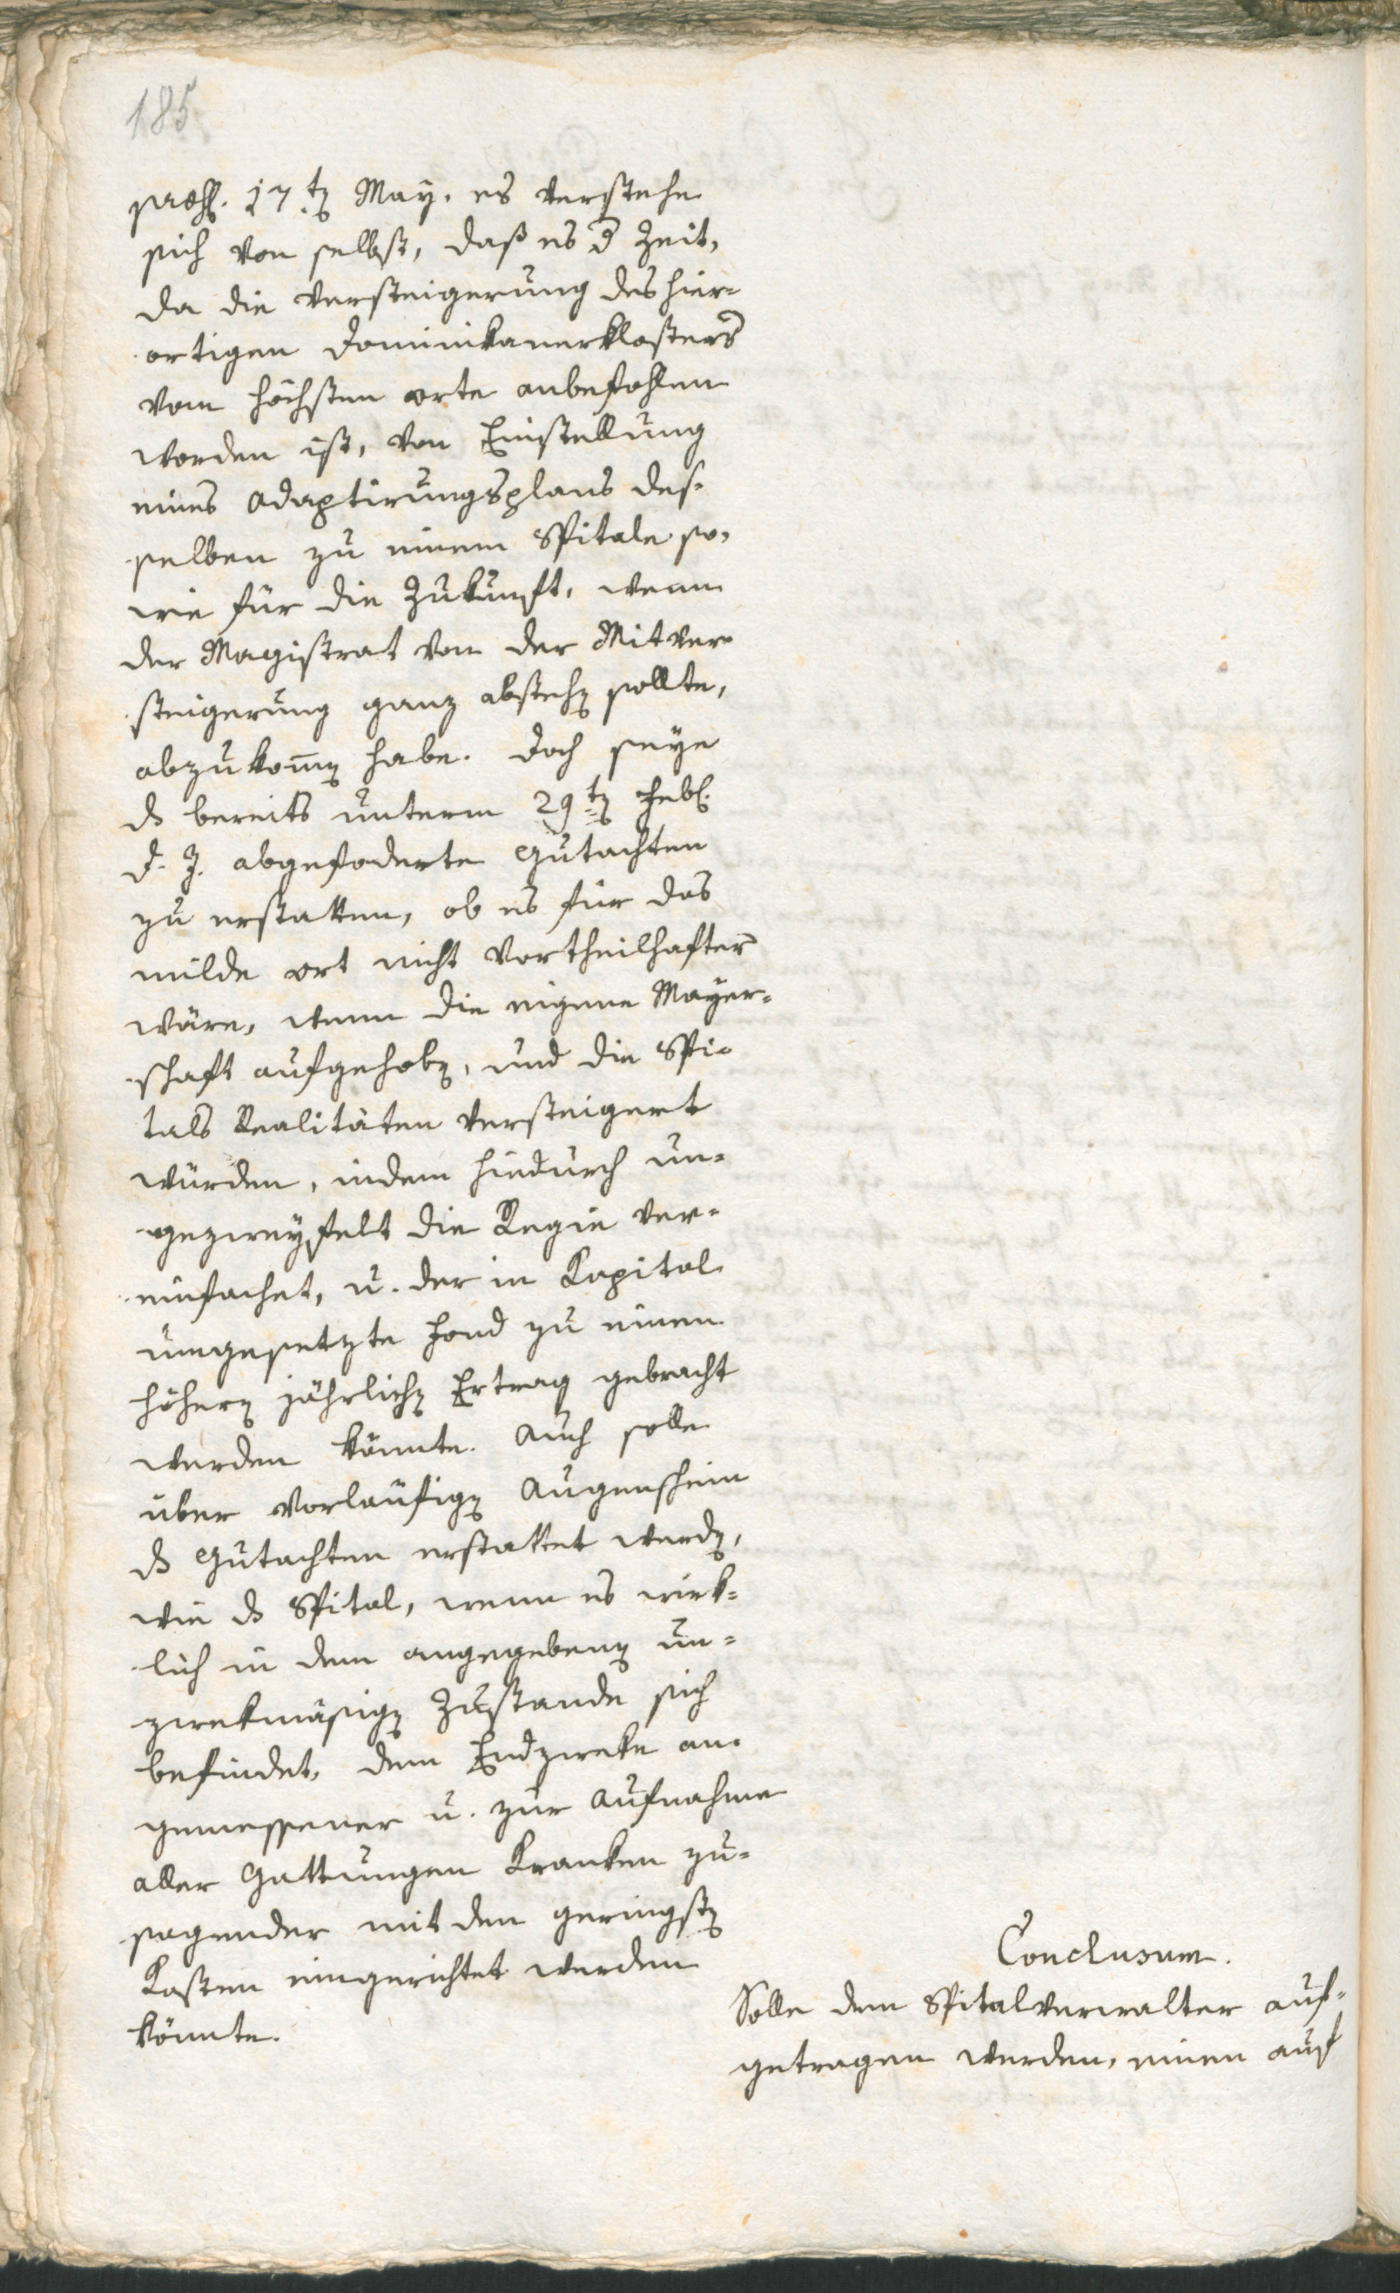 185
praes. 17ten May. es verstehe
sich von selbst, daß es d Zeit,
da die Versteigerung des hier-
ortigen Dominikanerklosters
vom höchsten Orte anbefohlen
worden ist, von Einstellung
eines Adaptirungsplans des-
selben zu einem Spitale so,
wie für die Zukunft, wenn
der Magistrat von der Mitver-
steigerung ganz abstehen sollte,
abzukommen habe. Doch seye
ds bereits unterm 29ten Febr.
d. J. abgefoderte Gutachten
zu erstatten, ob es für das
milde Ort nicht vortheilhafter
wäre, wenn die eigene Mayer-
schaft aufgehoben, und die Spi-
tals Realitäten versteigert
würden, indem hiedurch un-
gezweyfelt die Regie ver-
einfachet, u. der in Kapital
umgesetzte Fond zu einen
höhern jährlichen Ertrag gebracht
werden könnte. Auch solle
über vorläufigen Augenschein
ds Gutachten erstattet werden,
wie ds Spital, wenn es wirk-
lich in dem angegebenen un-
zwekmäsigen Zustande sich
befindet, dem Endzweke an-
gemessener u. zur Aufnahme
aller Gattungen Kranken zu-
sagender mit den geringsten
Kosten eingerichtet werden
könnte.
Conclusum.
Solle dem Spitalverwalter auf-
getragen werden, einen auf